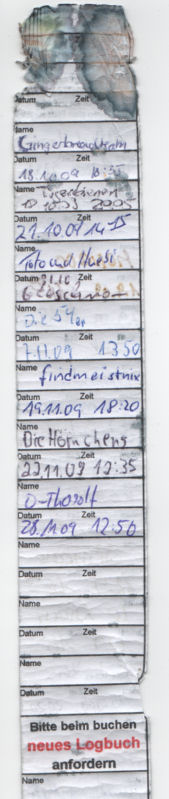 Datum Zeit
Name
Gingerbreadteam
Datum Zeit
18.10.09
Name
Datum Zeit
21.10.09 14:15
Name
Toto und Hansi
Datum Zeit
Name
Die 54er
Datum Zeit
7.11.09 13 50
Name
findmeistnix
Datum Zeit
19.11.09 18:20
Name
Die Hörnchens
Datum Zeit
22.11.09 12:35
Name
D-Thoralf
Datum Zeit
28.11.09 12:50
Name
Datum Zeit
Name
Datum Zeit
Name
Datum Zeit
Bitte beim buchen
neues Logbuch
anfordern
Name